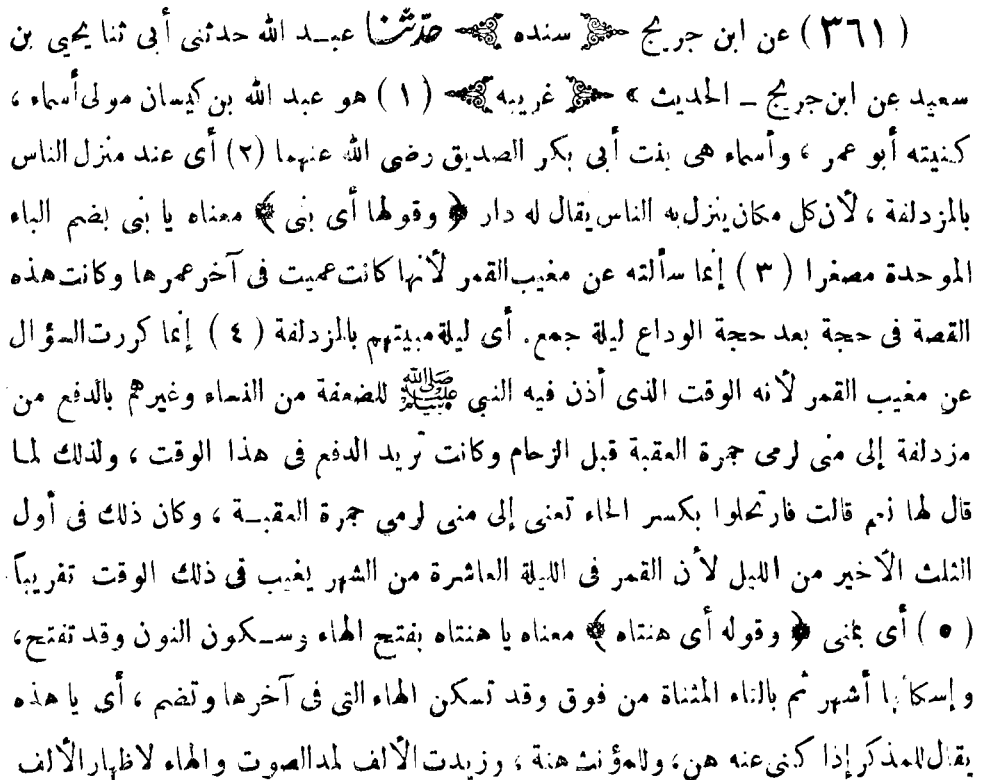 ( ٣٦١ ) عن ابن جريج ﴿ سنده ﴾ حدّثنا عبد الله حدثنى أبى ثنا يحيى بن
سعيد عن ابن جريج ــ الحديث » ﴿ غريبه ﴾ ( ١ ) هو عبد الله بن كيسان مولى أسماء ،
كنيته أبو عمر ، وأسماء هى بنت أبى بكر الصديق رضى الله عنهما (٢) أى عند منزل الناس
بالمزدلفة ، لأن كل مكان ينزل به الناس يقال له دار ﴿ وقولها أى بنى ﴾ معناه يا بنى بضم الباء
الموحدة مصغرا ( ٣ ) إنما سألته عن مغيب القمر لأنها كانت عميت فى آخر عمرها وكانت هذه
القصة فى حجة بعد حجة الوداع ليلة جمع. أى ليلة مبيتهم بالمزدلفة ( ٤ ) إنما كررت السؤال
عن مغيب القمر لأنه الوقت الذى أذن فيه النبى ﷺ للضعفة من النساء وغيرهم بالدفع من
مزدلفة إلى منى لرمى جمرة العقبة قبل الزحام وكانت تريد الدفع فى هذا الوقت ، ولذلك لما
قال لها نعم قالت فارتحلوا بكسر الحاء تعنى إلى منى لرمى جمرة العقبة ، وكان ذلك فى أول
الثلث الأخير من الليل لأن القمر فى الليلة العاشرة من الشهر يغيب فى ذلك الوقت تقريباً
( ٥ ) أى بمنى ﴿ وقوله أى هنتاه ﴾ معناه يا هنتاه بفتح الهاء وسكون النون وقد تفتح،
وإسكانها أشهر ثم بالتاء المثناة من فوق وقد تسكن الهاء التى فى آخرها وتضم ، أى يا هذه
يقال للمذكر إذا كنى عنه هن، وللمؤنث هنة ، وزيدت الألف لمد الصوت والهاء لاظهار الألف